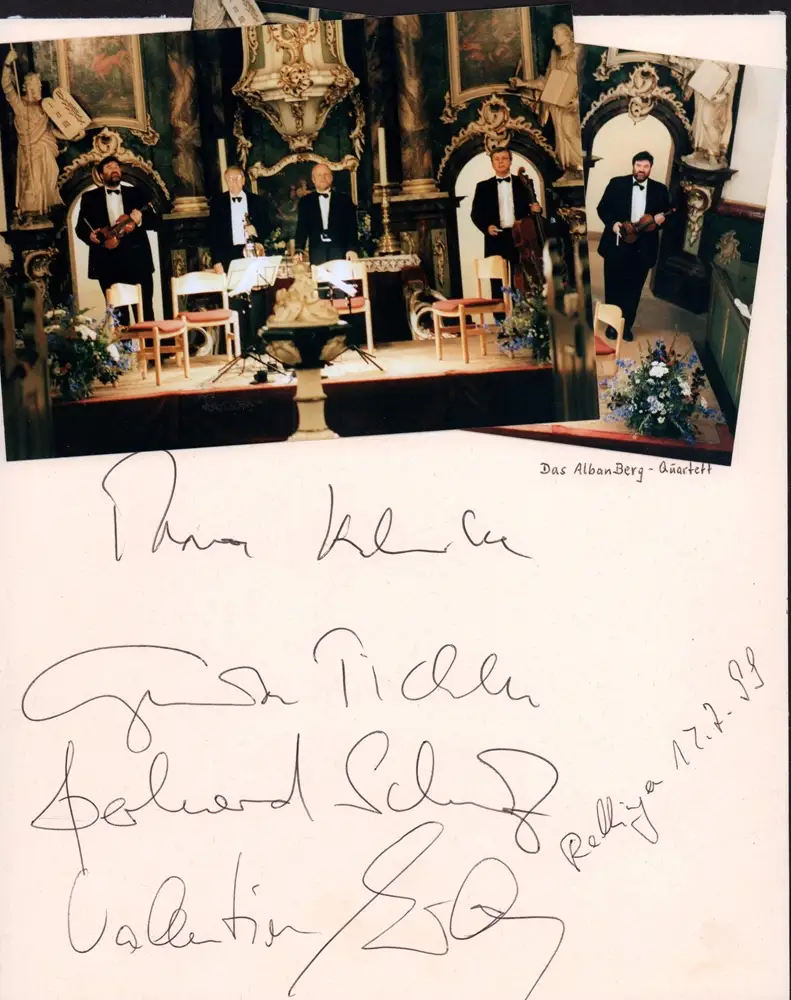 Das AlbanBerg-Quartett
Thomas Kakuska
Günter Pichler
Gerhard Schulz
Valentin Erben
Rellingen 17.7.99